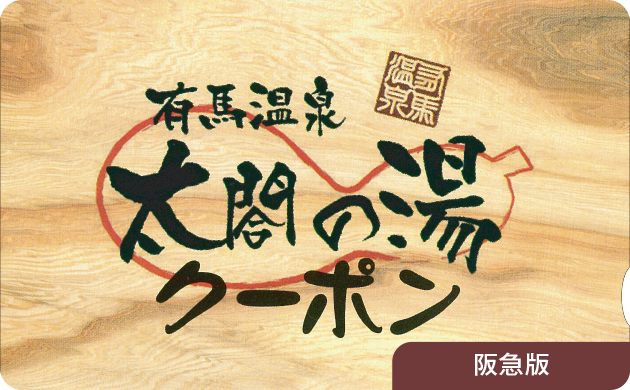 有馬温泉
有馬温泉
太閤の湯
クーポン
阪急版